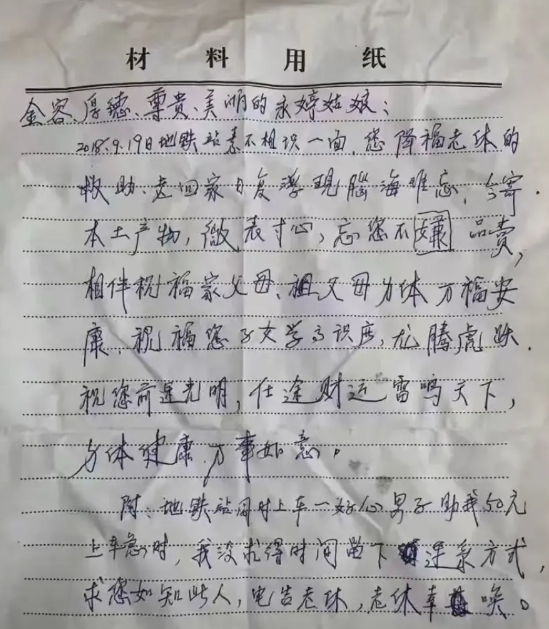 材料用纸
金容、厚德、尊贵、美丽的永婷姑娘:
2018.9.19日地铁站素不相识一面,您降福老休的
救助、走回家日复浮现腦海难忘,今寄
本土产物,微表寸心,忘您不嫌品赏,
相伴祝福家父母、祖父母身体万福安
康、祝福您子女学高识广,龙腾虎跃.
祝您前途光明,仕途财运雷鸣天下,
身体健康万事如意。
附:地铁站同时上车一好心男子助我50元
上车急时,我没求得时间留下连系方式,
求您如知此人,电告老休,老休奉唤。